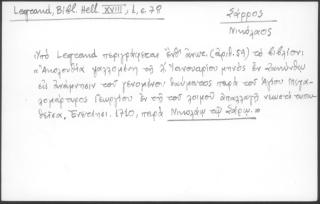 Legrand, Bibl. Hell. XVIII, 1, c. 78
Σάρρος
Νικόλαος
Ὑπὸ Legrand περιγράφεται ἔνθ' ἀνωτ. (ἀριθ. 54) τὸ βιβλίον:
«Ἀκολουθία ψαλλομένη τῇ Ἰαννουαρίου μηνὸς ἐν Ζακύνθῳ
εἰς ἀνάμνησιν τοῦ γενομένου θαύματος παρὰ τοῦ Ἁγίου Μεγα-
λομάρτυρος Γεωργίου ἐν τῇ τοῦ λοιμοῦ ἀπαλλαγῇ νεωστὶ τυπω-
θεῖσα. Ἐνετίησι. 1710, παρὰ Νικολάῳ τῷ Σάρῳ.»